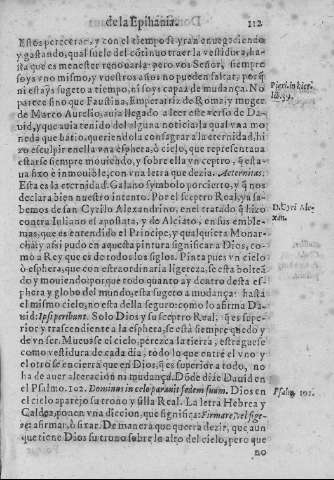 de la Epiphania. 112
Estos pereceran, y con el tiempo se yran enuegeciendo
y gastando, qual suele del cótinuo traer la vestidura, ha-
sta que es menester renouarla: pero vos Señor, siempre
soys vno mismo, y vuestros años no pueden faltar, porq̃
ni estays sugeto a tiempo, ni soys capaz de mudança. No
parece sino que Faustina, Emperatriz de Roma, y muger
de Marco Aurelio, auia llegado a leer este verso de Da-
uid, y que auia tenido del alguna noticia: la qual vna mo
neda que batio, queriendola consagrar a la eternidad, hi
zo esculpir en ella vna esphera, ò cielo, que representaua
estarse siempre mouiendo, y sobre ella vn ceptro, q̃ esta-
ua fixo e inmouible, con vna letra que dezia. Aeternitas.
Esta es la eternidad. Galano symbolo por cierto, y q̃ nos
declara bien nuestro intento. Por el sceptro Real, ya sa-
bemos de san Cyrillo Alexandrino, en el tratado q̃ hizo
contra Iuliano el apostata, y de Alciato, en sus emble-
mas, que es entendido el Principe, y qualquiera Monar-
cha: y assi pudo en aquesta pintura significar a Dios, co-
mo a Rey que es de todos los siglos. Pinta pues vn cielo
ò esphera, que con estraordinaria ligereza, se esta boltea
dò y mouiendo: porque todo quanto ay dentro desta es
phera y globo del mundo, esta sugeto a mudança: hasta
el mismo cielo, no esta della seguro: como lo afirma Da
uid: Ipsi peribunt. Solo Dios y su sceptro Real, q̃ es supe-
rior y trascendiente a la esphera, se està siempre quedo y
de vn ser. Mueuase el cielo, perezca la tierra, estreguese
como vestidura de cada dia, todo lo que entre el vno y
el otro se encierra que en Dios, q̃ es superior a todo, no
ha de auer alteracion ni mudança. Dóde dize Dauid en
el Psalmo. 102. Dominus in cælo parauit sedem suam. Dios en
el cielo aparejo su trono y silla Real. La letra Hebrea y
Caldea, ponen vna diccion, que significa: Firmare, vel fige-
re; afirmar, ò fixar. De manera que querra dezir, que aun
que tiene Dios su trono sobre lo alto del cielo, pero que
no
Pieri. in hier.
lib. 39.
D. Cyri. Ale-
xan.
Psalm. 102.